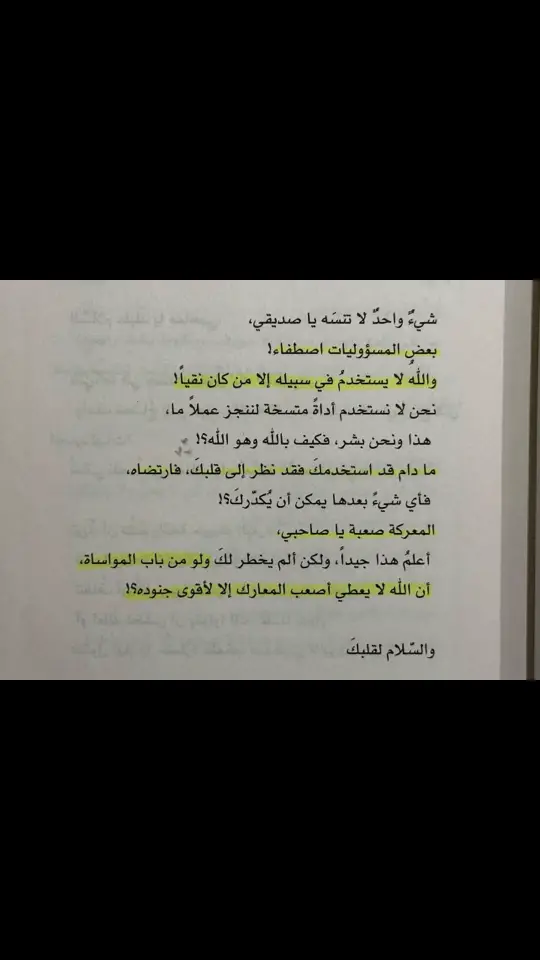 شيءٌ واحدٌ لا تنسَه يا صديقي،
بعضِ المسؤوليات اصطفاء!
والله لا يستخدمُ في سبيله إلا من كان نقياً!
نحن لا نستخدم أداةً متسخة لننجز عملاً ما،
هذا ونحن بشر، فكيف بالله وهو الله؟!
ما دام قد استخدمكَ فقد نظر إلى قلبكَ، فارتضاه،
فأي شيءٍ بعدها يمكن أن يُكدّركَ؟!
المعركة صعبة يا صاحبي،
أعلمُ هذا جيداً، ولكن ألم يخطر لكَ ولو من باب المواساة،
أن الله لا يعطي أصعب المعارك إلا لأقوى جنوده؟!
والسّلام لقلبكَ